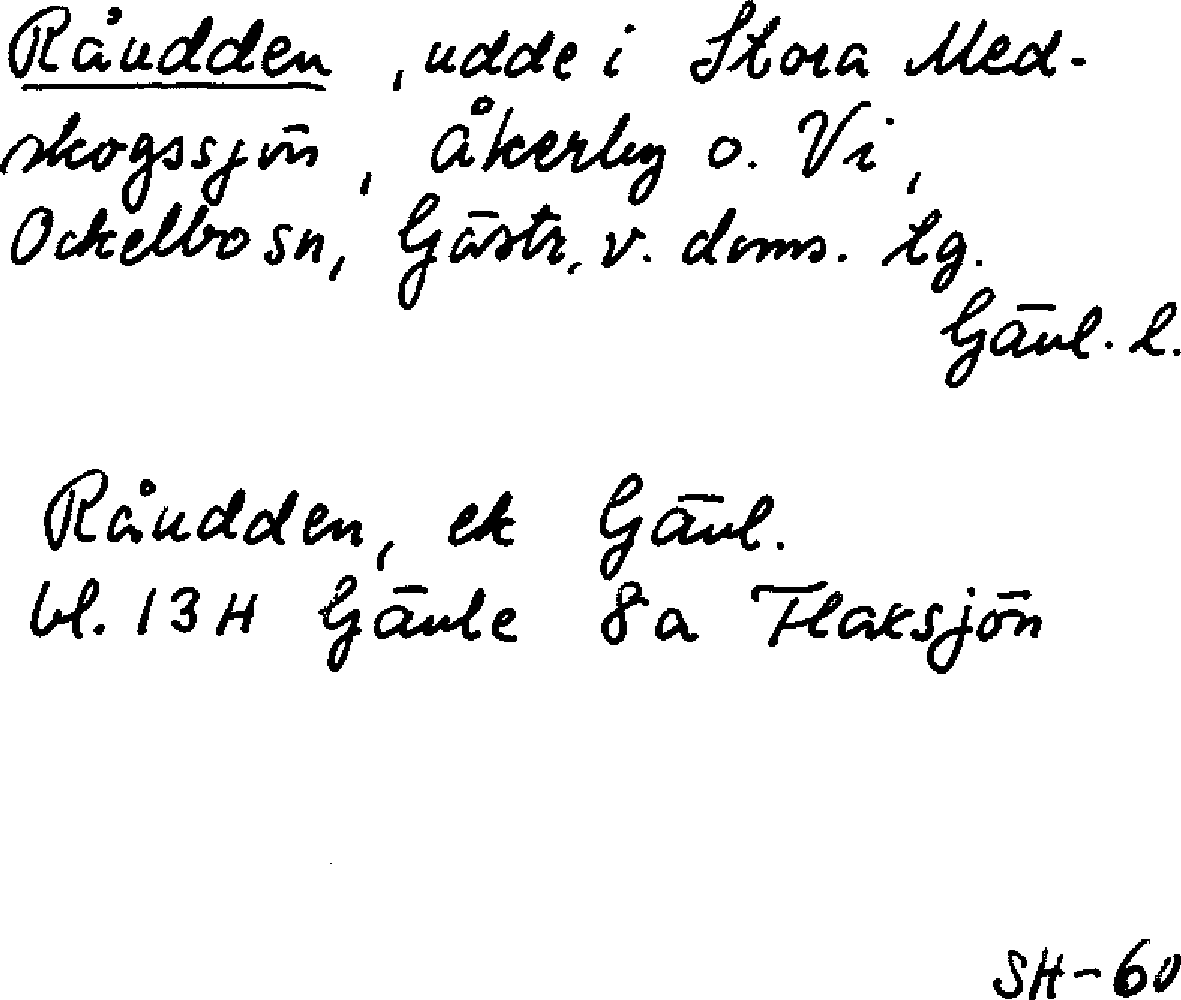 Råudden, udde i Stora Med-
skogssjön, Åkerby o. Vi,
Ockelbo sn, Gästr. v. doms. tg.
Gävl. l.
Råudden, ek Gävl.
bl. 13H Gävle 8a Flaksjön
SH-60